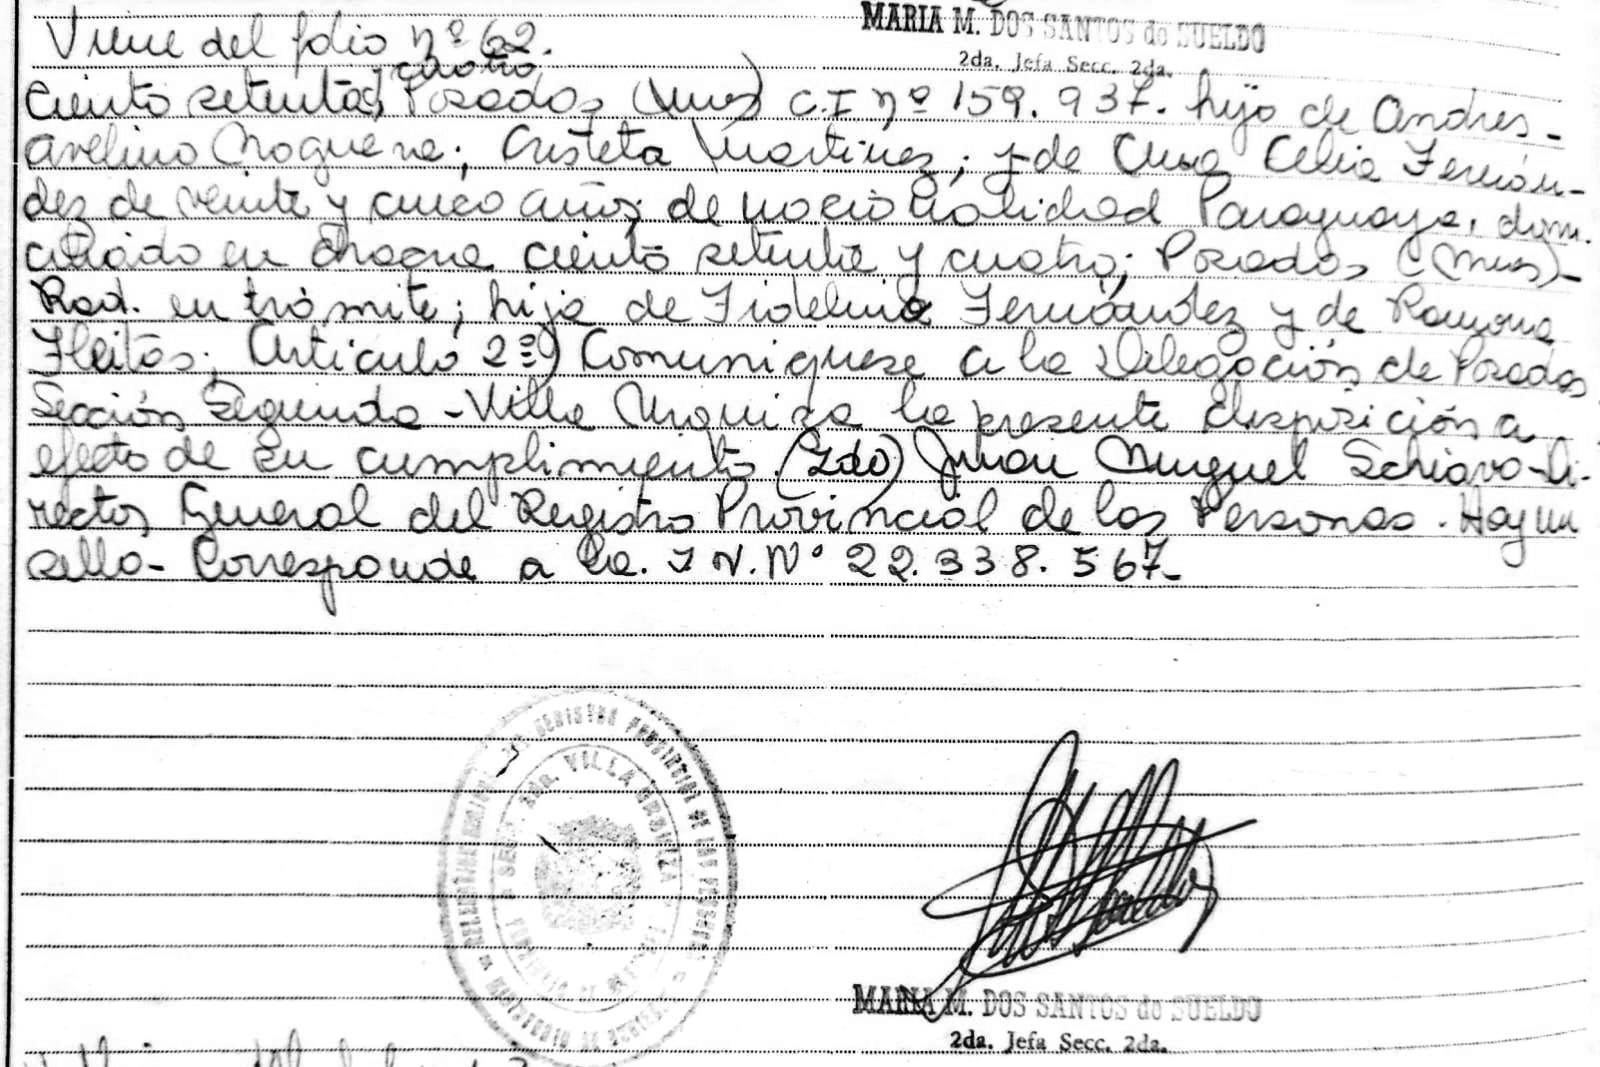 Viene del folio nº 62.
MARIA M. DOS SANTOS de SUELDO
2da. Jefa Secc. 2da.
cuatro
Ciento setenta y Posadas (Mnes) C.I nº 159.937. hijo de Andres-
Avelino Noguera; Cristeta Martinez; y de Elsa Celia Fernán-
dez de veinte y cinco años; de nacionalidad Paraguaya, domi-
ciliado en Chacra ciento setenta y cuatro; Posadas (Mnes)-
Rad. en trámite; hija de Fidelino Fernández y de Ramona
Fleitas; Articulo 2º) Comuniquese a la Delegación de Posadas
Sección Segunda - Villa Urquiza la presente disposición a
efecto de su cumplimiento. (Fdo) Juan Miguel Schiavo-Di-
rector General del Registro Provincial de las Personas. Hay un
sello- Corresponde a la. I N. Nº 22.338.567-
REGISTRO PROVINCIAL DE LAS PERSONAS
SECC. 2da. VILLA URQUIZA
MARIA M. DOS SANTOS de SUELDO
2da. Jefa Secc. 2da.